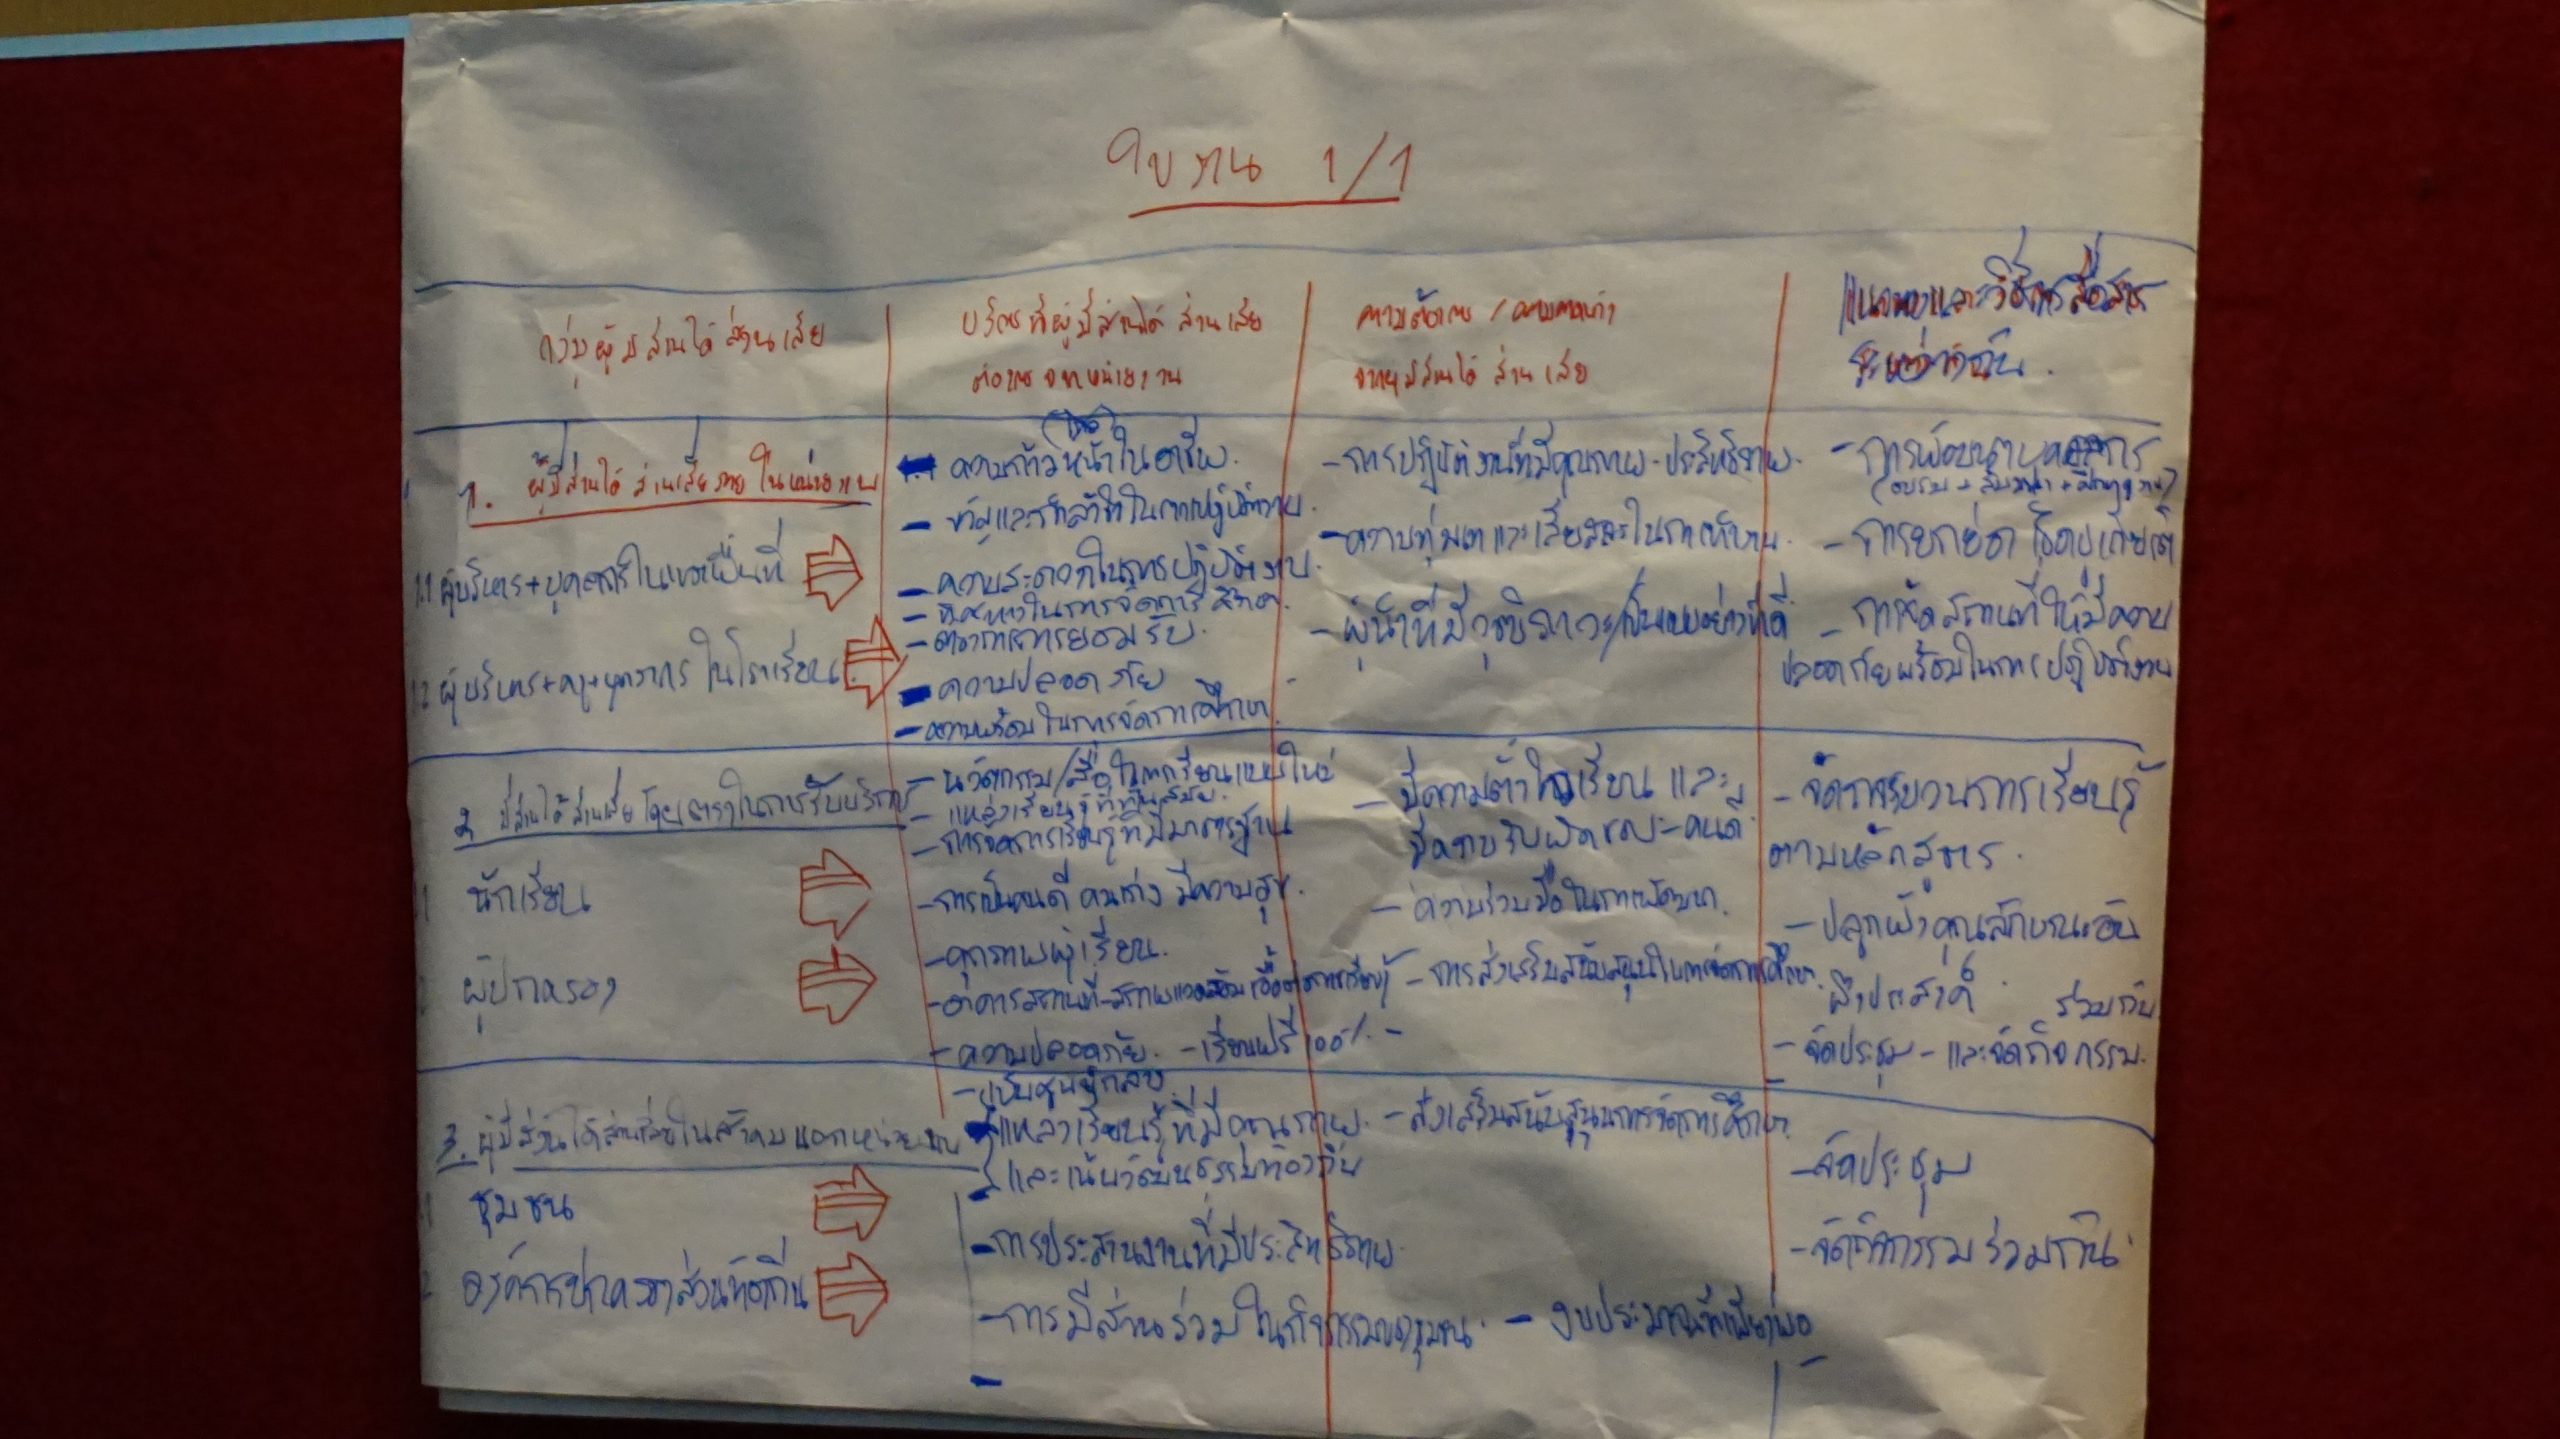 ใบงาน 1/1
กลุ่มผู้มีส่วนได้ ส่วนเสีย
บริการที่ผู้มีส่วนได้ ส่วนเสีย
ต้องการจากหน่วยงาน
ความต้องการ / ความคาดหวัง
จากผู้มีส่วนได้ ส่วนเสีย
แนวทางและวิธีการสื่อสาร
ระหว่างกัน.
1. ผู้มีส่วนได้ ส่วนเสียภายในหน่วยงาน
1.1 ผู้บริหาร+บุคลากรในเขตพื้นที่
1.2 ผู้บริหาร+ครู+บุคลากร ในโรงเรียน
- ความก้าวหน้าในอาชีพ.
- ขวัญและกำลังใจในการปฏิบัติงาน.
- ความสะดวกในการปฏิบัติงาน.
- ทิศทางในการจัดการศึกษา.
- ต้องการการยอมรับ.
- ความปลอดภัย
- ความพร้อมในการจัดการศึกษา.
- การปฏิบัติงานที่มีคุณภาพ-ประสิทธิภาพ.
- ความทุ่มเทและเสียสละในการทำงาน.
- ผู้นำที่มีวุฒิภาวะ/เป็นแบบอย่างที่ดี
- การพัฒนาบุคลากร
(อบรม + สัมมนา + ศึกษาดูงาน)
- การยกย่อง เชิดชูเกียรติ
- การจัดสถานที่ให้มีความ
ปลอดภัยพร้อมในการปฏิบัติงาน
2. มีส่วนได้ส่วนเสียโดยตรงในการรับบริการ
นักเรียน
ผู้ปกครอง
- นวัตกรรม/สื่อในการเรียนแบบใหม่
- แหล่งเรียนรู้ที่ทันสมัย.
- การจัดการเรียนรู้ที่มีมาตรฐาน
- การเป็นคนดี คนเก่ง มีความสุข.
- คุณภาพผู้เรียน.
- อาคารสถานที่-สภาพแวดล้อมเอื้อต่อการเรียนรู้
- ความปลอดภัย. - เรียนฟรี 100%.
- มีความตั้งใจเรียน และ
มีความรับผิดชอบ-คนดี
- ความร่วมมือในการพัฒนา.
- การส่งเสริมสนับสนุนในการจัดการศึกษา.
- จัดกระบวนการเรียนรู้
ตามหลักสูตร.
- ปลูกฝังคุณลักษณะอัน
พึงประสงค์ ร่วมกัน
- จัดประชุม - และจัดกิจกรรม.
3. ผู้มีส่วนได้ส่วนเสียในสังคมนอกหน่วยงาน
ชุมชน
องค์กรปกครองส่วนท้องถิ่น
แหล่งเรียนรู้ที่มีคุณภาพ.
และเน้นวัฒนธรรมท้องถิ่น
- การประสานงานที่มีประสิทธิภาพ.
- การมีส่วนร่วมในกิจกรรมของชุมชน.
- ส่งเสริมสนับสนุนการจัดการศึกษา.
- งบประมาณที่เพียงพอ
- จัดประชุม
- จัดกิจกรรมร่วมกัน